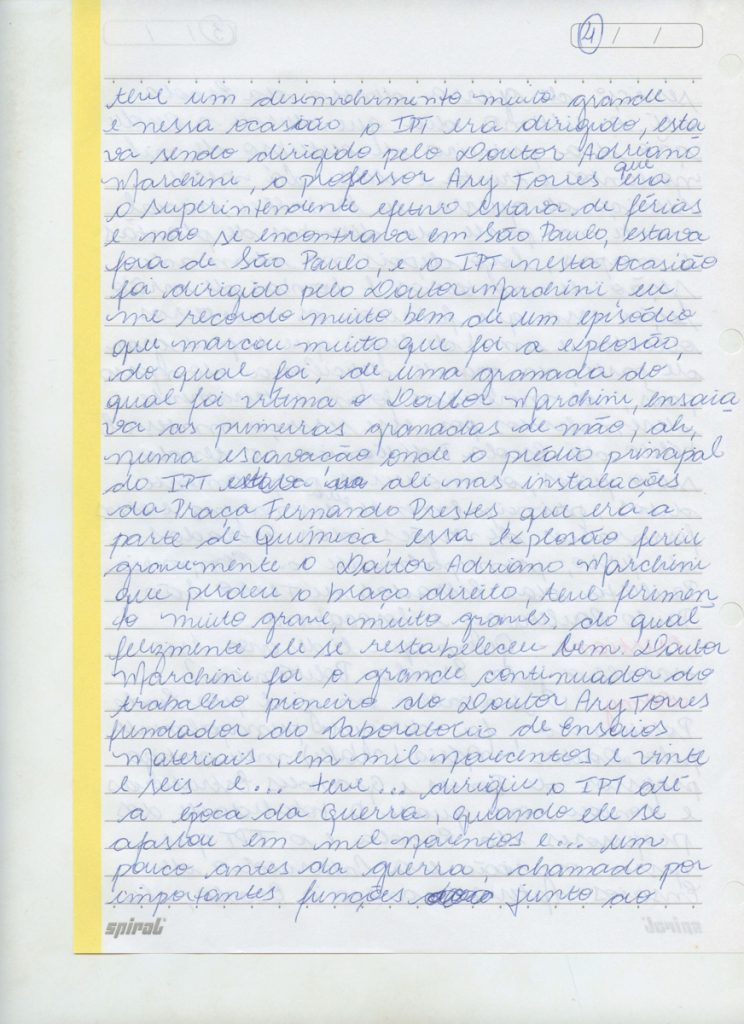 4 / /
teve um desenvolvimento muito grande
e nessa ocasião o IPT era dirigido, esta
va sendo dirigido pelo Doutor Adriano
Marchini, o professor Ary Torres que era
o superintendente efetivo estava de férias
e não se encontrava em São Paulo, estava
fora de São Paulo, e o IPT nesta ocasião
foi dirigido pelo Doutor Marchini eu
me recordo muito bem de um episódio
que marcou muito que foi a explosão,
do qual foi, de uma granada do
qual foi vítima o Doutor Marchini, ensaia
va as primeiras granadas de mão, ah,
numa escavação onde o prédio principal
do IPT ali nas instalações
da Praça Fernando Prestes que era a
parte de Química, essa explosão feriu
gravemente o Doutor Adriano Marchini
que perdeu o braço direito, teve ferimen
to muito grave, muito graves, do qual
felizmente ele se restabeleceu bem Doutor
Marchini foi o grande continuador do
trabalho pioneiro do Doutor Ary Torres
fundador do Laboratório de Ensaios
Materiais, em mil novecentos e vinte
e seis e... teve... dirigiu o IPT até
a época da Guerra, quando ele se
afastou em mil noventos e... um
pouco antes da guerra, chamado por
importantes funções junto ao
spiral